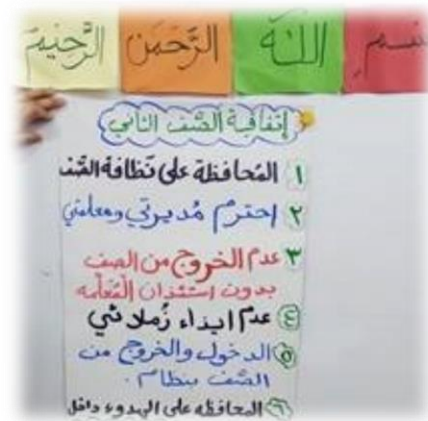 بسم الله الرحمن الرحيم
إتفاقية الصف الثاني
١ المحافظة على نظافة الصف
٢ احترم مُديرتي ومعلمتي
٣ عدم الخروج من الصف
بدون استئذان المُعلمه
٤ عدم ايذاء زُملائي
٥ الدخول والخروج من
الصف بنظام.
٦ المحافظه على الهدوء داخل